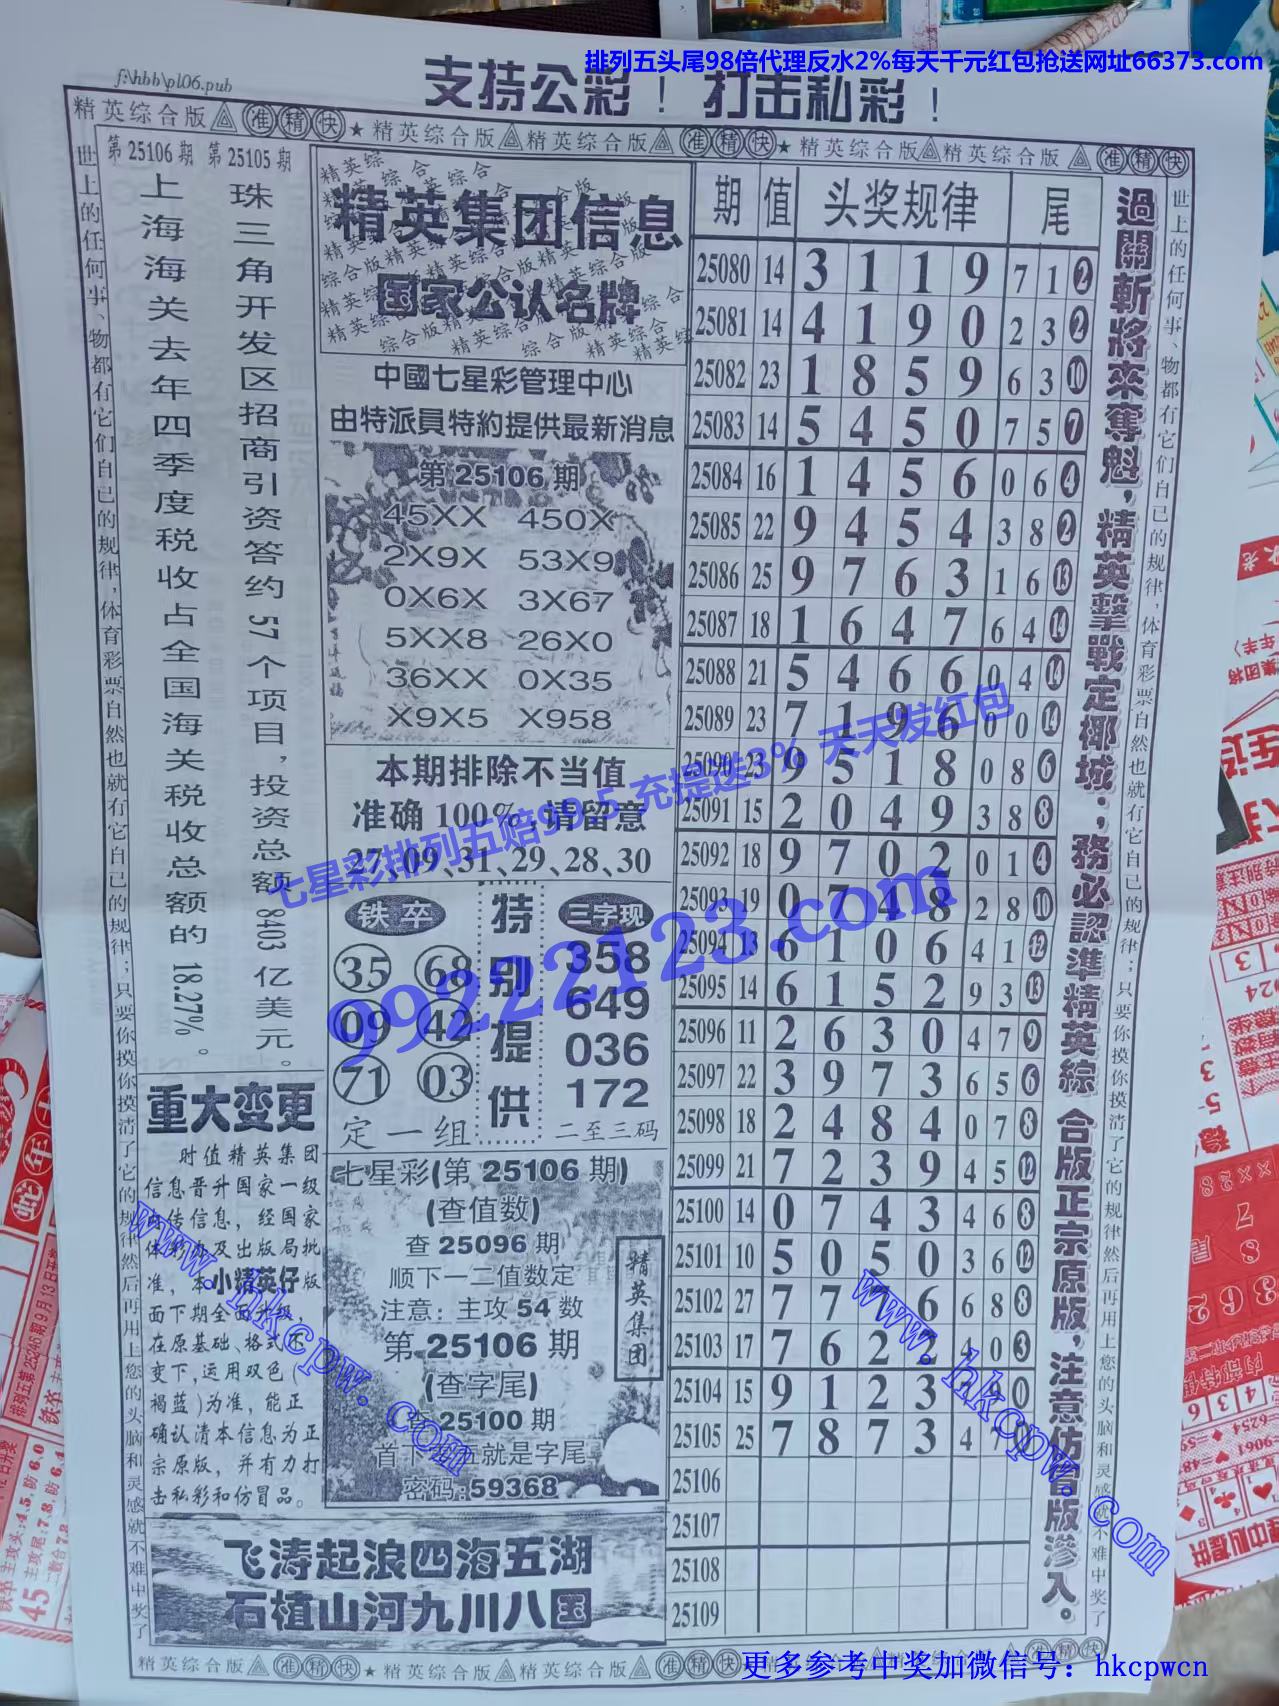 排列五头尾98倍代理反水2%每天千元红包抢送网址66373.com
f:\hbb\pl06.pub
支持公彩！打击私彩！
精英综合版 准精快 ★ 精英综合版 精英综合版 准精快 ★ 精英综合版 精英综合版 准精快
世上的任何事、物都有它们自己的规律，体育彩票自然也就有它自己的规律；只要你摸你摸清了它的规律然后再用上您的头脑和灵感就不难中奖了
第 25106 期 第 25105 期
珠三角开发区招商引资答约57个项目，投资总额8403亿美元。
上海海关去年四季度税收占全国海关税收总额的18.27%。
精英集团信息
国家公认名牌
中國七星彩管理中心
由特派員特約提供最新消息
第 25106 期
45XX 450X
2X9X 53X9
0X6X 3X67
5XX8 26X0
36XX 0X35
X9X5 X958
本期排除不当值
准确 100%，请留意
27、09、31、29、28、30
铁卒
35 68
09 42
71 03
定一组
特别提供
三字现
358
649
036
172
二至三码
重大变更
时值精英集团
信息晋升国家一级
传信息，经国家
及出版局批
准，本小精英仔版
面下期全面升级，
在原基础、格式不
变下，运用双色（
褐蓝）为准，能正
确认清本信息为正
宗原版，并有力打
击私彩和仿冒品。
七星彩(第 25106 期)
(查值数)
查 25096 期
顺下一二值数定
注意：主攻 54 数
第 25106 期
(查字尾)
25100 期
首下 就是字尾
密码:59368
精英集团
飞涛起浪四海五湖
石植山河九川八国
期 值 头奖规律 尾
25080 14 3 1 1 9 7 1 2
25081 14 4 1 9 0 2 3 2
25082 23 1 8 5 9 6 3 10
25083 14 5 4 5 0 7 5 7
25084 16 1 4 5 6 0 6 4
25085 22 9 4 5 4 3 8 2
25086 25 9 7 6 3 1 6 13
25087 18 1 6 4 7 6 4 14
25088 21 5 4 6 6 0 4 14
25089 23 7 1 9 6 0 0 14
25090 23 9 5 1 8 0 8 6
25091 15 2 0 4 9 3 8 3
25092 18 9 7 0 2 0 1 4
25093 19 0 7 4 8 2 8 10
25094 13 6 1 0 6 4 1 12
25095 14 6 1 5 2 9 3 13
25096 11 2 6 3 0 4 7 9
25097 22 3 9 7 3 6 5 6
25098 18 2 4 8 4 0 7 3
25099 21 7 2 3 9 4 5 12
25100 14 0 7 4 3 4 6 3
25101 10 5 0 5 0 3 6 12
25102 27 7 7 7 6 6 8 3
25103 17 7 6 2 2 4 0 3
25104 15 9 1 2 3 0
25105 25 7 8 7 3 4 7
25106
25107
25108
25109
過關斬將來奪魁，精英擊戰定椰城；務必認準精英綜合版正宗原版，注意仿冒版滲入。
世上的任何事、物都有它们自己的规律，体育彩票自然也就有它自己的规律；只要你摸你摸清了它的规律然后再用上您的头脑和灵感就不难中奖了
精英综合版 准精快 ★ 精英综合版 精英综合版 准精快 ★ 精英综合版
七星彩排列五赔99.5 充提送3% 天天发红包
99222123.com
www.hkcpw.com
www.hkcpw.com
更多参考中奖加微信号：hkcpwcn